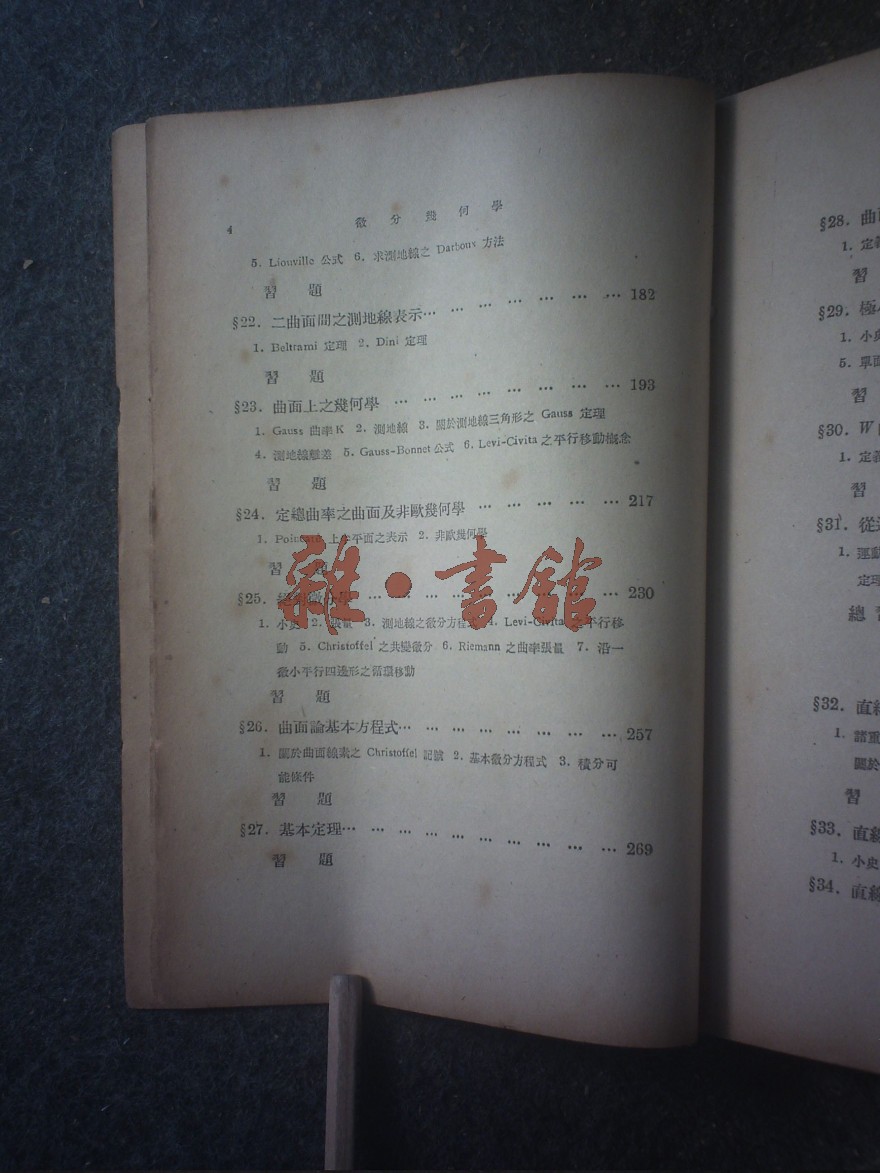 4 微分幾何學
5. Liouville 公式 6. 求測地線之 Darboux 方法
習 題
§22. 二曲面間之測地線表示… … … … … … … 182
1. Beltrami 定理 2. Dini 定理
習 題
§23. 曲面上之幾何學 … … … … … … … … 193
1. Gauss 曲率K 2. 測地線 3. 關於測地線三角形之 Gauss 定理
4. 測地線離差 5. Gauss-Bonnet 公式 6. Levi-Civita 之平行移動概念
習 題
§24. 定總曲率之曲面及非歐幾何學 … … … … … 217
1. 上半平面之表示 2. 非歐幾何學
習 題
§25. 絕對微分學 … … … … … … … … … 230
1. 小史 2. 張量 3. 測地線之微分方程式 4. Levi-Civita 之平行移
動 5. Christoffel 之共變微分 6. Riemann 之曲率張量 7. 沿一
微小平行四邊形之循環移動
習 題
§26. 曲面論基本方程式… … … … … … … … 257
1. 關於曲面線素之 Christoffel 記號 2. 基本微分方程式 3. 積分可
能條件
習 題
§27. 基本定理… … … … … … … … … … 269
習 題
雜·書館
§28. 曲
1. 定
習
§29. 極
1. 小
5. 單
習
§30. W
1. 定
習
§31. 從
1. 運動
定理
總
§32. 直
1. 諸
關於
習
§33. 直線
1. 小史
§34. 直線